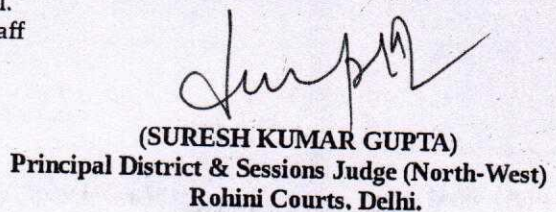 aff
(SURESH KUMAR GUPTA)
Principal District & Sessions Judge (North-West)
Rohini Courts, Delhi.